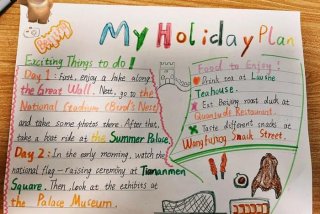 My Holiday Plan
Exciting Things to do!
Day 1: First, enjoy a hike along
the Great Wall. Next, go to the
National Stadium (Bird's Nest)
and take some photos there. After that,
take a boat ride at the Summer Palace.
Day 2: In the early morning, watch the
national flag-raising ceremony at Tiananmen
Square. Then, look at the exhibits at
the Palace Museum.
Food to Enjoy!
Drink tea at Laoshe
Teahouse.
Eat Beijing roast duck at
Quanjude Restaurant.
Taste different snacks at
Wangfujing Snack Street.